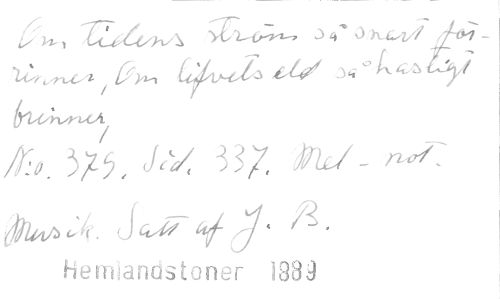 Om tidens ström så snart för-
rinner, Om lifvets eld så hastigt
brinner,
N:o. 379. Sid. 337. Mel-not.
Musik. Satt af J. B.
Hemlandstoner 1889